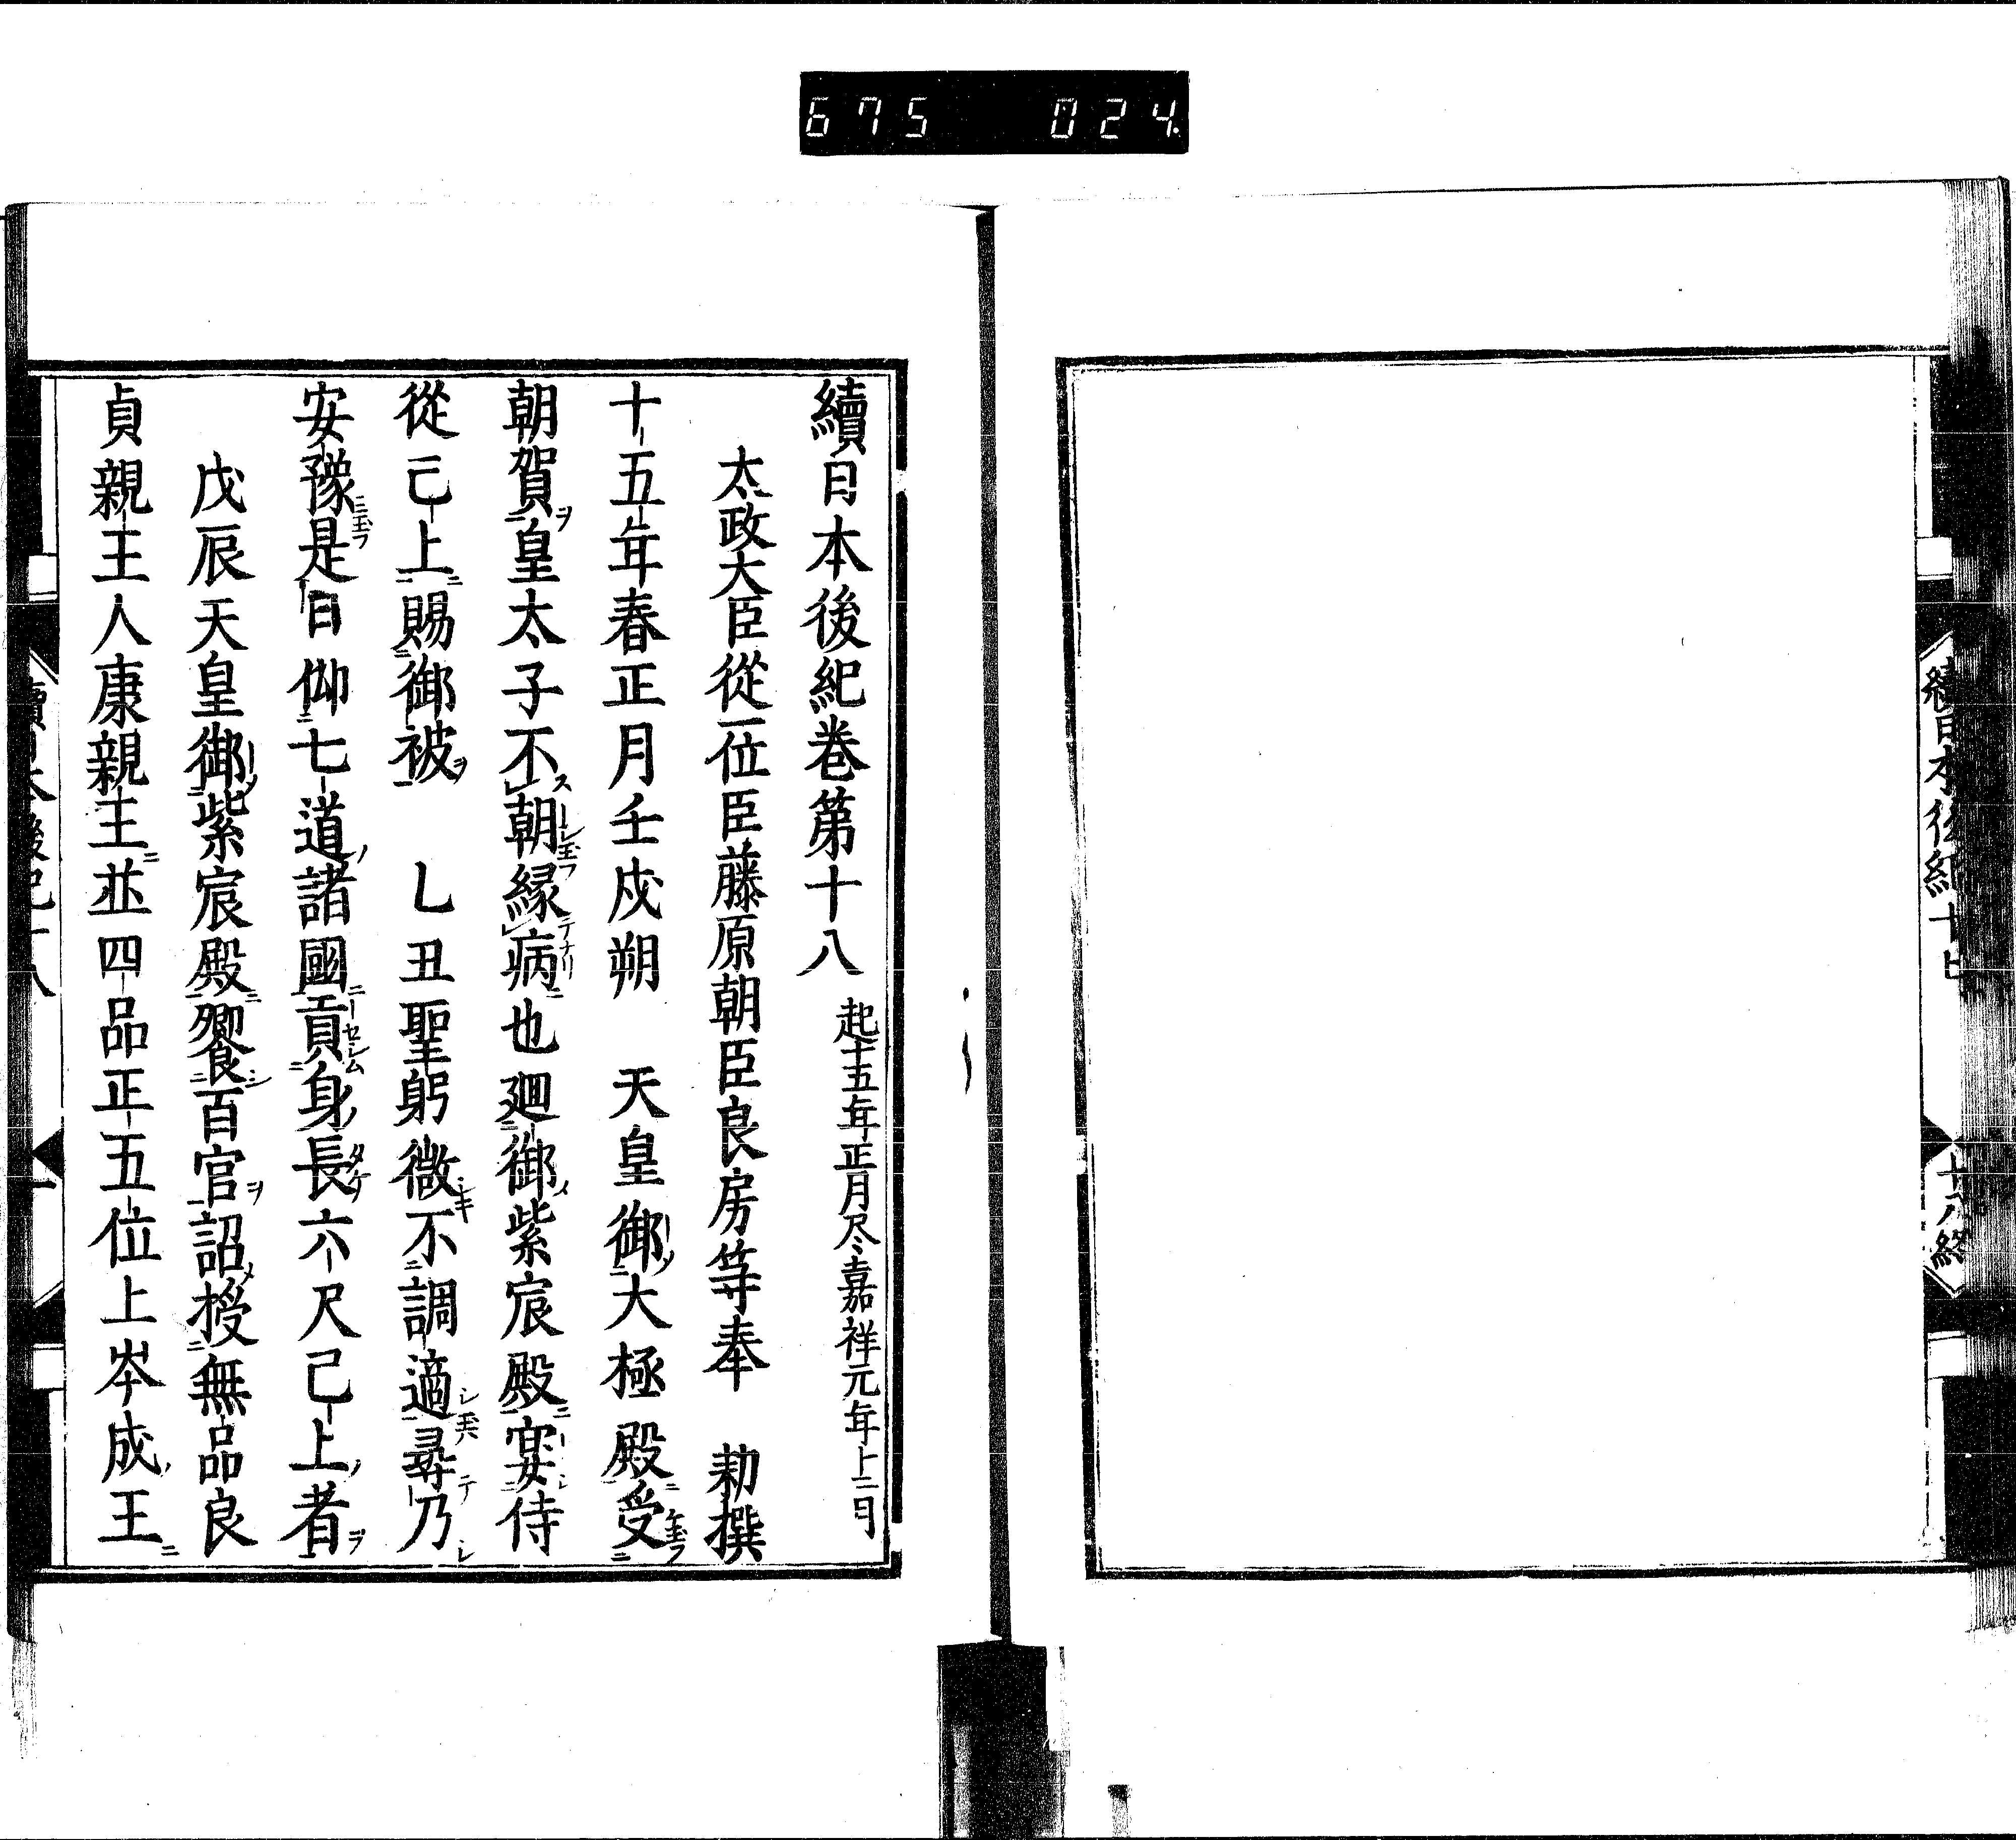 675 024
續日本後紀巻第十八 起十五年正月尽嘉祥元年十二日
太政大臣從一位臣藤原朝臣良房等奉 勅撰
十五年春正月壬戌朔 天皇御大極殿受
朝賀皇太子不朝縁病也廻御紫宸殿宴侍
從已上賜御被 乙丑聖躬微不調適尋乃
安豫是日仰七道諸國貢身長六尺已上者
戊辰天皇御紫宸殿饗百官詔授無品良
貞親王人康親王並四品正五位上岑成王